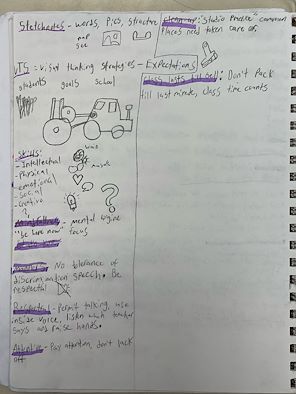 Sketchbooks - words, pics, structure
map
see
Cleanup: Studio Practice - common
Places need taken care of.
VTS = visual thinking strategies - Expectations
students goals school
class lasts till bell: Don't Pack
till last minute, class time counts
Skills:
- Intellectual
- Physical
- emotional
- social
- creative
?
muscle
?
- mental hygiene
"be here now" focus
No tolerance of
discrimination speech. Be
respectful
Respectful - Permit talking, use
inside voice, listen when teacher
says and raise hands.
Attentive - Pay attention, don't lack
off